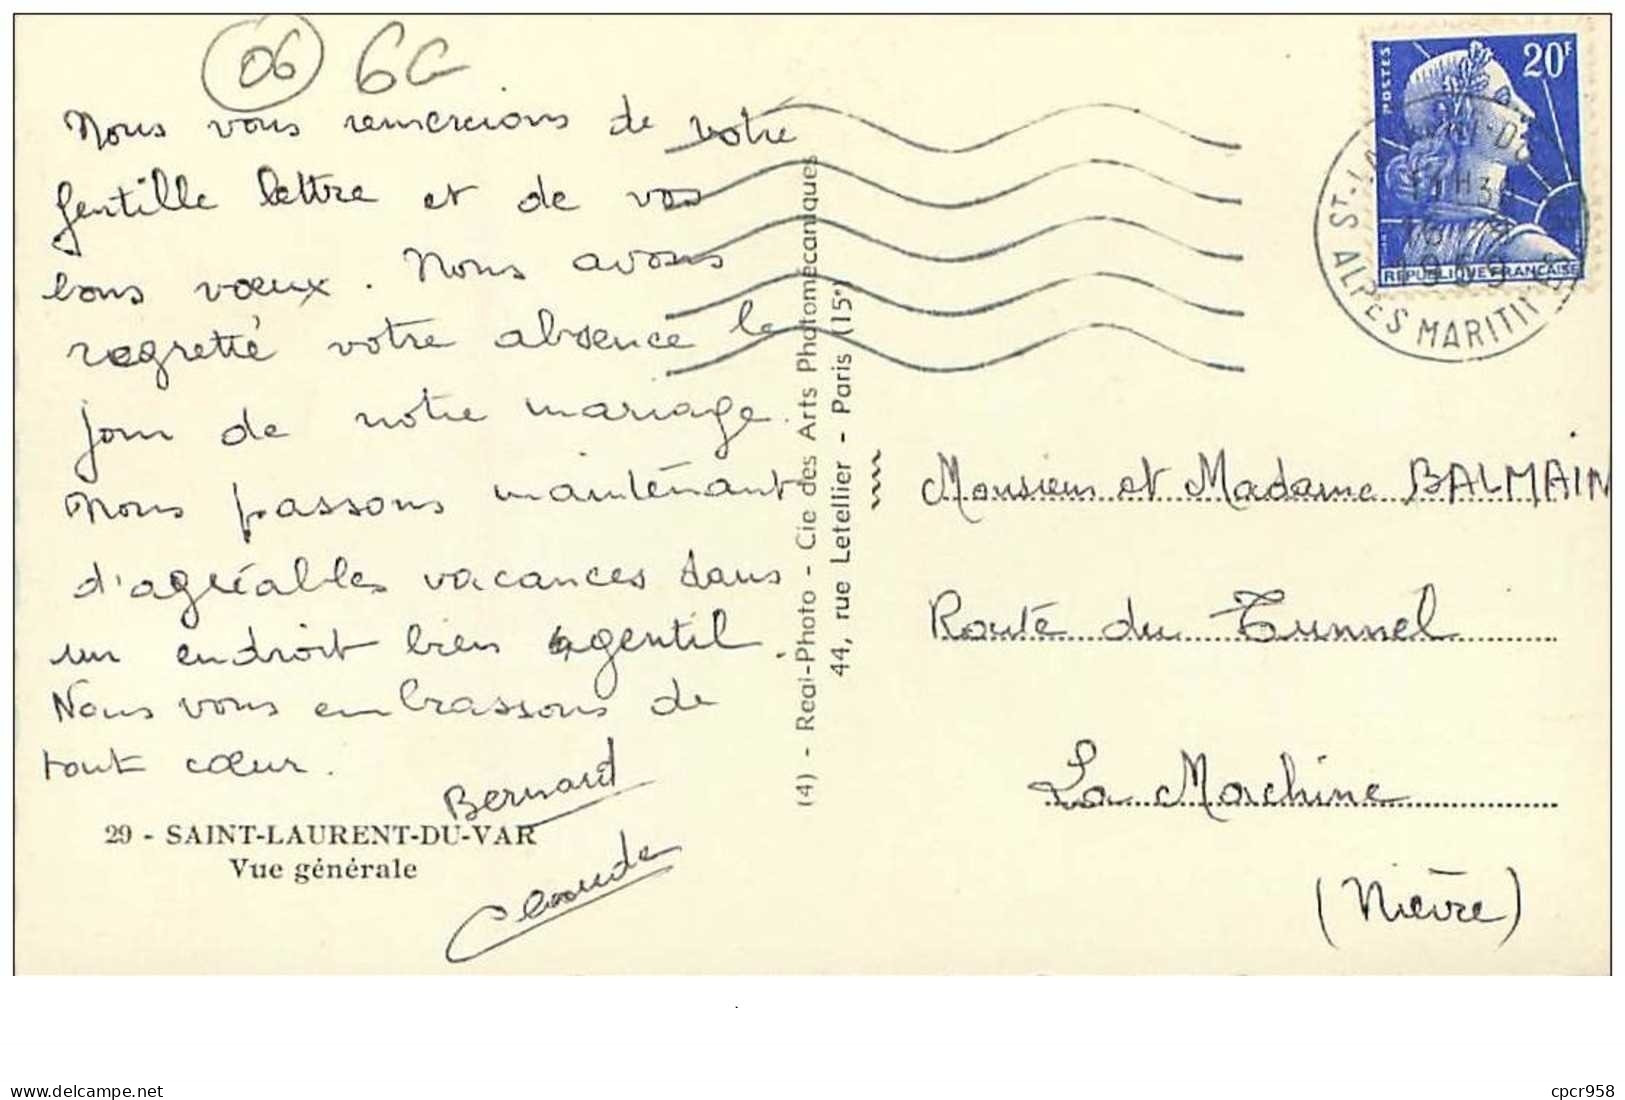 06 6G
Nous vous remercions de votre
gentille lettre et de vos
bons vœux. Nous avons
regretté votre absence le
jour de notre mariage.
Nous passons maintenant
d'agréables vacances dans
un endroit bien gentil.
Nous vous embrassons de
tout cœur.
Bernard
Claude
29 - SAINT-LAURENT-DU-VAR
Vue générale
(4) - Real-Photo - Cie des Arts Photomecaniques
44, rue Letellier - Paris (15e)
POSTES
20F
REPUBLIQUE FRANÇAISE
1959
ALPES MARITIMES
Monsieur et Madame BALMAIN
Route du Tunnel
La Machine
(Nièvre)
www.delcampe.net
cpcr958